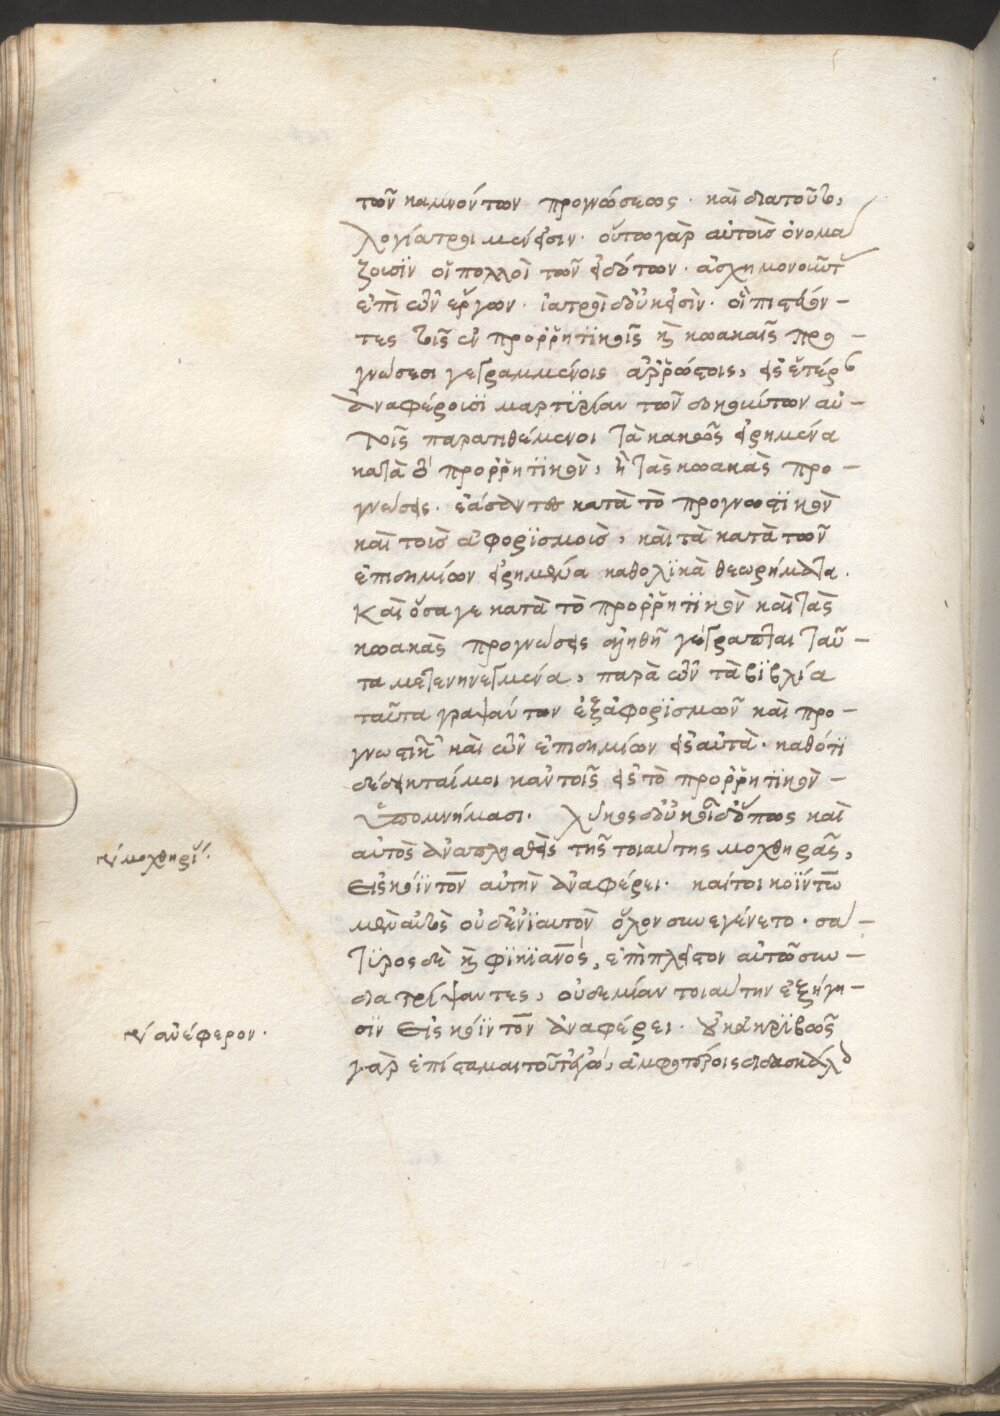 τῶν καμνόντων προγνώσεως · καὶ διατοῦτο,
λογίατροι μέν εἰσιν · οὕτω γὰρ αὐτοὺς ὀνομά
ζουσϊν οἱ πολλοὶ τῶν εἰδότων · ἀσχημονοῦντες
ἐπὶ τῶν ἔργων · ἰατροὶ δ' οὐκ εἰσὶν · οἳ πιστεύον –
τες τοῖς ἐν προρρητϊκοῖς καὶ κωακαῖς προ –
γνώσεσι γεγραμμένοις ἀρρώστοις, εἰς ἕτέρο
ἀναφέρουσϊ μαρτϋρίαν τῶν διηκόντων αὐ –
τοῖς παρατιθέμενοι τὰ κακῶς εἰρημένα
κατὰ τὸ προρρητϊκὸν, ἢ τὰς κωακὰς προ –
γνώσεις · ἐάσαντες κατὰ τὸ προγνωστϊκὸν
καὶ τοῖς ἀφορϊσμοῖς, καὶ τὰ κατὰ τῶν
ἐπιδημίων εἰρημένα καθολϊκὰ θεωρήματα ·
Καὶ ὅσα γε κατὰ τὸ προρρητϊκὸν καὶ τὰς
κωακὰς προγνώσεις ἀληθῆ γέγραπται ταῦ –
τα μετενηνεγμένα, παρὰ τῶν τὰ βϊβλία
ταῦτα γραψάντων ἐξ ἀφορϊσμῶν καὶ προ –
γνωστικοῦ καὶ τῶν ἐπιδημίων εἰς αὐτὰ · καθότι
δέδεικταί μοι κἀν τοῖς εἰς τὸ προρρητϊκὸν –
ὑπομνήμασι · λύκος δ' οὐκ οἶδ' ὅπως καὶ
αὐτὸς ἀναπλησθεὶς τῆς τοιαύτης μοχθηρᾶς,
εἰς κόϊντον αὐτὴν ἀναφέρει · καίτοι κοΐντω
μὲν αὐτὸς οὐδ' ἐνϊαυτὸν ὅλον συνεγένετο · σά –
τϋρος δὲ καὶ φϊκϊανὸς, ἐπιπλεῖστον αὐτῶ συν –
διατρίψαντες, οὐδεμίαν τοιαύτην ἐξήγη –
σϊν εἰς κόϊντον ἀναφέρει · οὐκ ἀκρϊβῶς
γὰρ ἐπίσταμαι τοῦτ' ἐγὼ, ἀμφοτέροις διδασκάλο
μοχθηρί
ἀνέφερον ·